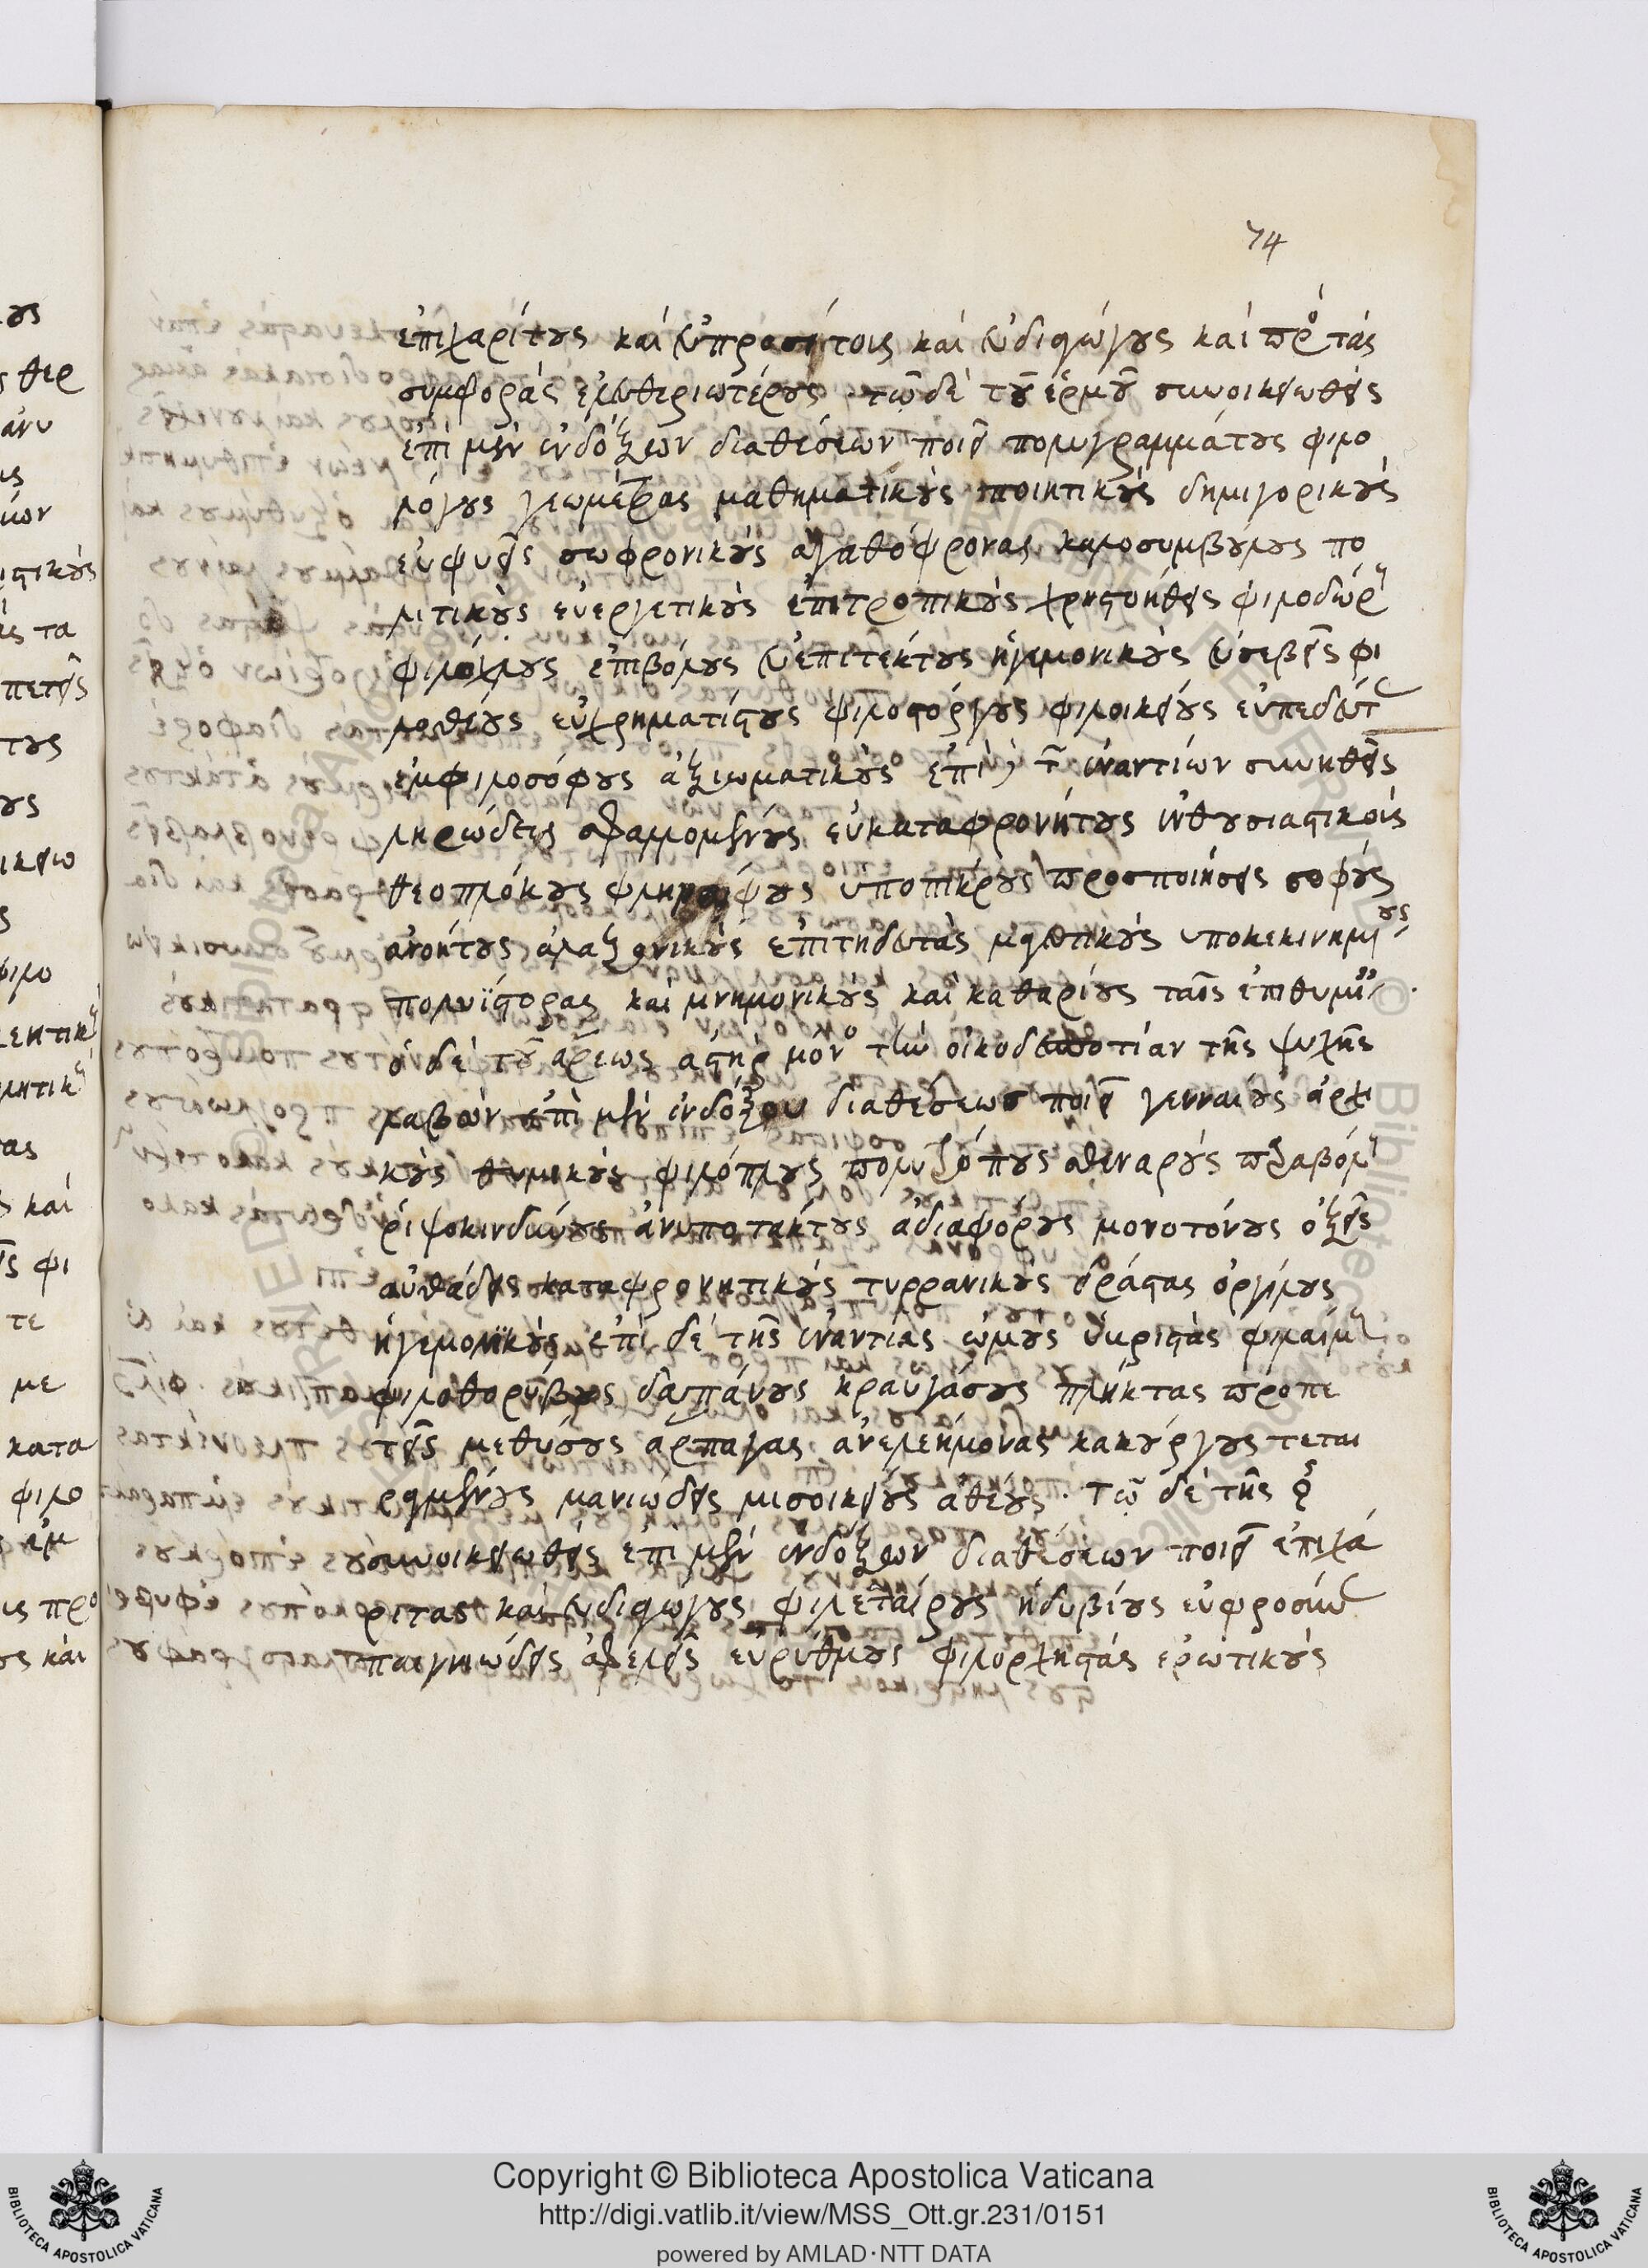 74
ἐπιχαρίτους καὶ εὐπροσίτοις καὶ εὐδιαγώγους καὶ πρὸς τὰς
συμφορὰς ἐλευθεριωτέρους. τῶ δὲ τοῦ ἑρμοῦ συνοικειωθεὶς
ἐπὶ μὲν ἐνδόξων διαθέσεων ποιεῖ πολυγραμμάτους φιλο
λόγους γεωμέτρας μαθηματικοὺς ποιητικοὺς δημηγορικοὺς
εὐφυεῖς σωφρονικοὺς ἀγαθόφρονας καλοσυμβούλους πο
λιτικοὺς εὐεργετικοὺς ἐπιτροπικοὺς χρηστοήθεις φιλοδώρους
φιλόχλους ἐπιβόλους εὐεπιτεκτους ἡγεμονικοὺς εὐσεβεῖς φι
λοθέους εὐχρηματίστους φιλοστόργους φιλοικείους εὐπεδευτ
ἐμφιλοσόφους ἀξιωματικοὺς ἐπὶ δὲ τῶν ἐναντίων συνήθεις
ληρώδεις σφαλλομένους εὐκαταφρονήτους ἐνθουσιαστικοὺς
θεοπλόκους φληνάφους ὑποπίκρους προσποιήσεις σοφοὺς
ἀνοήτους ἀλαζονικοὺς ἐπιτηδευτὰς μαγευτικοὺς ὑποκεκινημένους
πολυΐστορας καὶ μνημονικοὺς καὶ καθαρίους ταῖς ἐπιθυμίαις.
ὁ δὲ τοῦ ἄρεως ἀστὴρ μόνος τὴν οἰκοδεσποτίαν τῆς ψυχῆς
λαβὼν ἐπὶ μὲν ἐνδόξου διαθέσεως ποιεῖ γενναίους ἀρχι
κοὺς θυμικοὺς φιλόπλους πολυτρόπους σθεναροὺς παραβόλους
ῥιψοκινδύνους ἀνυποτάκτους ἀδιαφόρους μονοτόνους ὀξεῖς
αὐθάδεις καταφρονητικοὺς τυρρανικοὺς δράστας ὀργίλους
ἡγεμονϊκοὺς ἐπὶ δὲ τῆς ἐναντίας ὠμοὺς ὑβριστὰς φιλαίμους
φιλοθορύβους δαπάνους κραυγάσους πλήκτας προπε
τεῖς μεθύσους ἅρπαγας ἀνελεήμονας κακούργους τεται
ραγμένους μανιώδεις μισοικείους ἀθέους. Τῶ δὲ τῆς ♀
συνοικειωθεὶς ἐπὶ μὲν ἐνδόξων διαθέσεων ποιεῖ ἐπιχά
ριτας καὶ εὐδιαγώγους φιλεταίρους ἡδυβίους εὐφροσύν
παιγνιώδεις ἀφελεῖς εὐρύθμους φιλορχηστὰς ἐρωτικοὺς
Copyright © Biblioteca Apostolica Vaticana
http://digi.vatlib.it/view/MSS_Ott.gr.231/0151
powered by AMLAD·NTT DATA